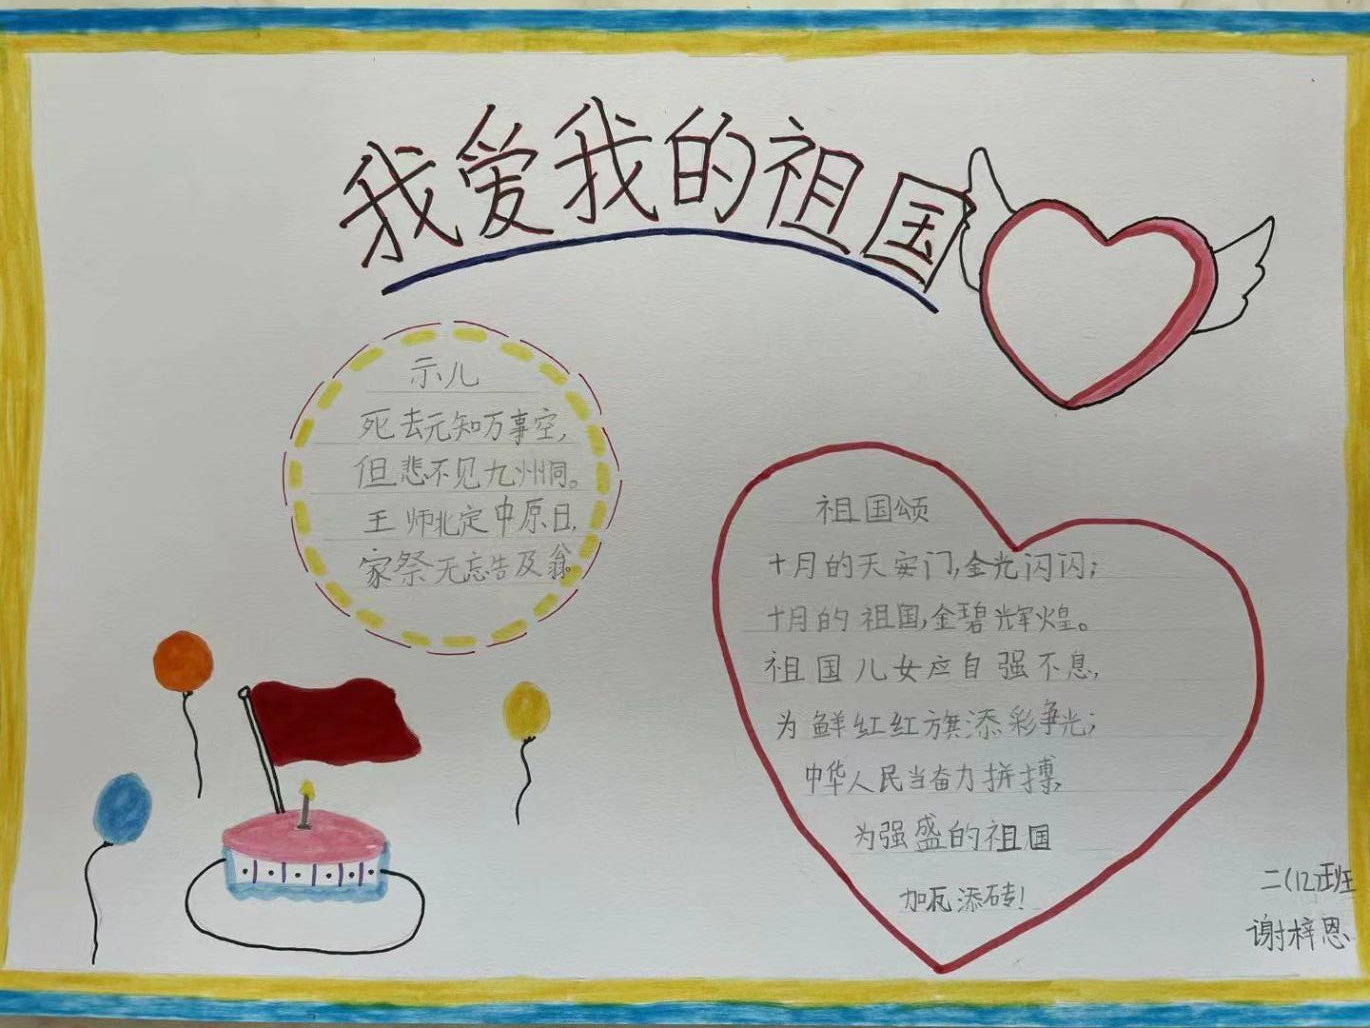 我爱我的祖国
示儿
死去元知万事空,
但悲不见九州同。
王师北定中原日,
家祭无忘告及翁。
祖国颂
十月的天安门,金光闪闪;
十月的祖国,金碧辉煌。
祖国儿女应自强不息,
为鲜红红旗添彩争光;
中华人民当奋力拼搏,
为强盛的祖国
加瓦添砖!
二(12)班
谢梓恩